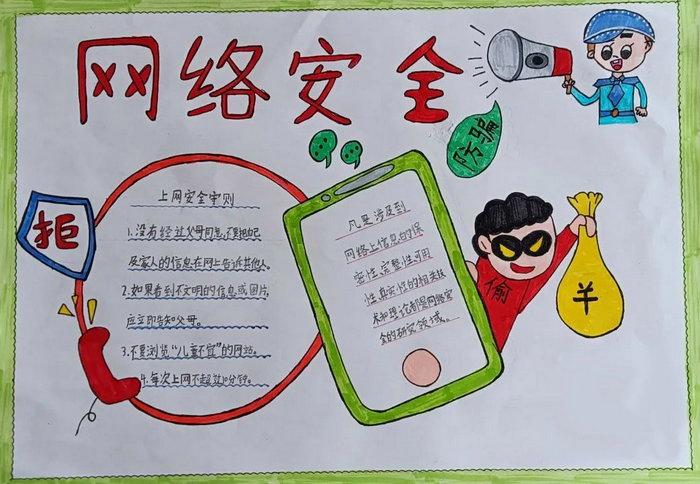 网络安全
防骗
拒
上网安全守则
1.没有经过父母同意,不要把自己
及家人的信息在网上告诉其他人。
2.如果看到不文明的信息或图片,
应立即告知父母。
3.不要浏览“儿童不宜”的网站。
4.每次上网不超过10分钟。
凡是涉及到
网络上信息的保
密性、完整性、可用
性、真实性的相关技
术和理论都是网络安
全的研究领域。
偷
¥